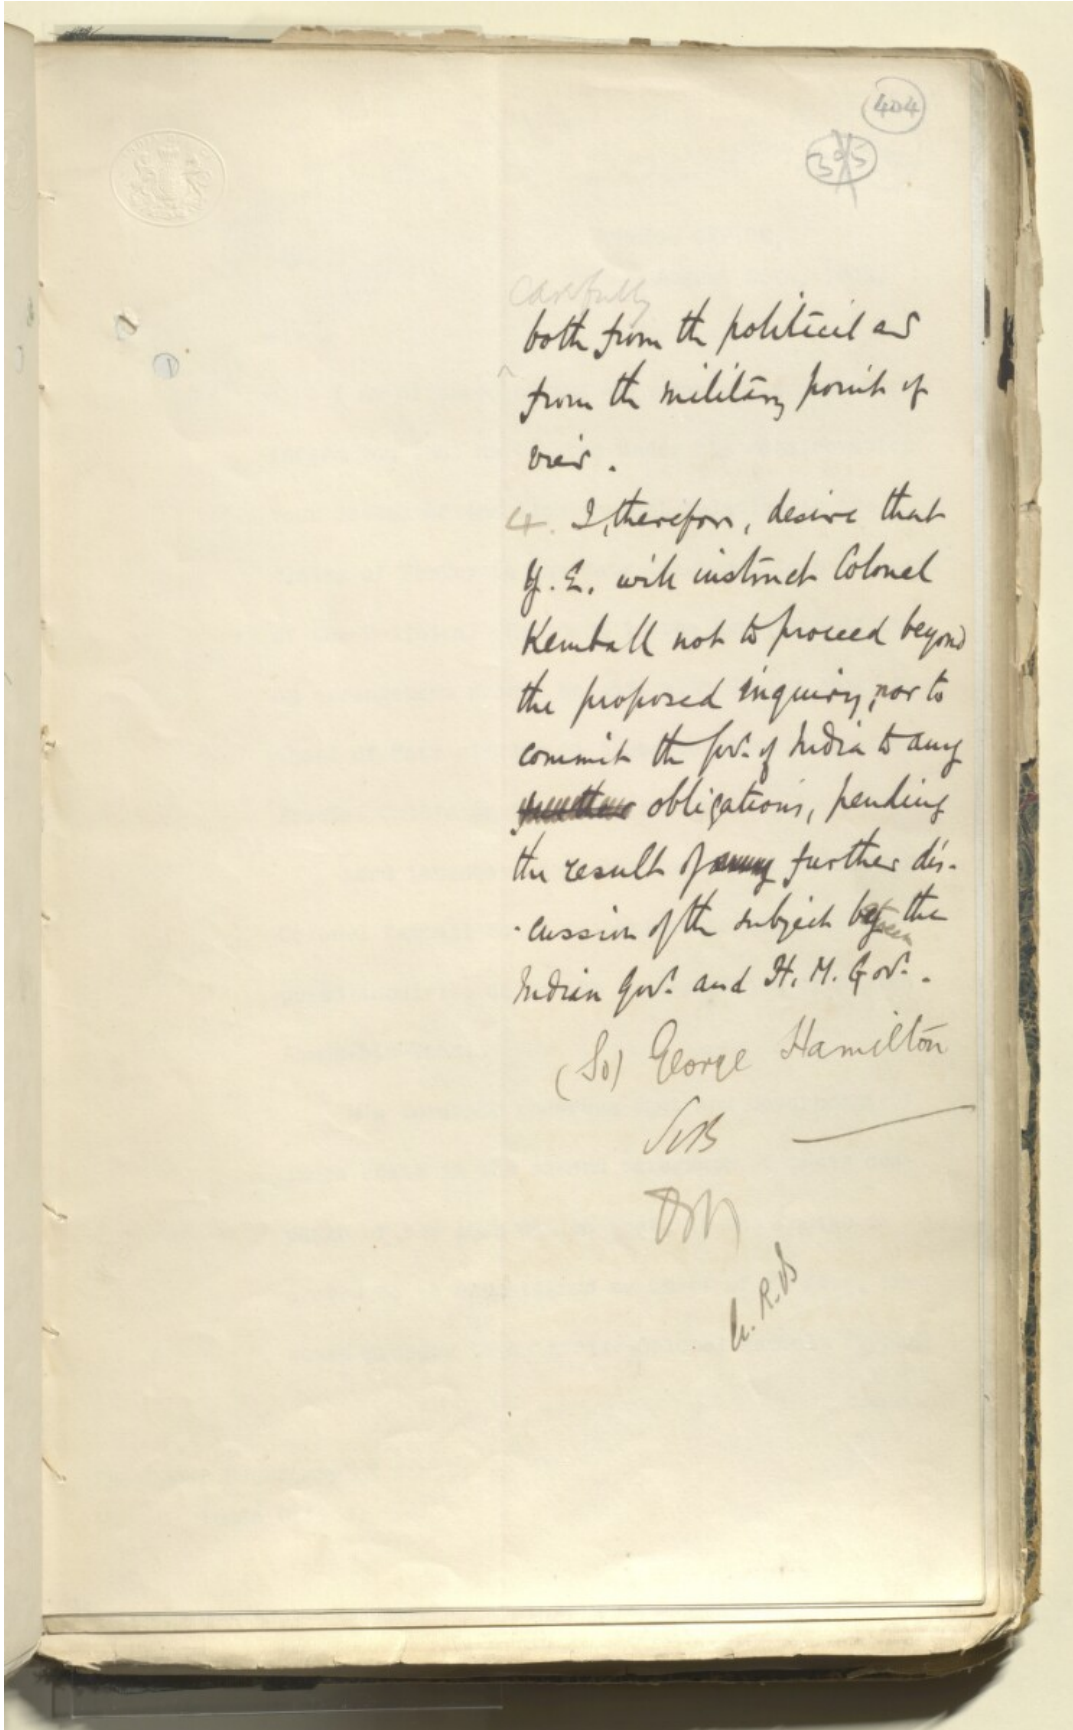 404
395
carefully
both from the political and
from the military point of
view.
4. I, therefore, desire that
Y. E. will instruct Colonel
Kemball not to proceed beyond
the proposed inquiry, nor to
commit the Govt. of India to any
obligations, pending
the result of further dis-
-cussion of the subject between the
Indian Govt. and H. M. Govt.
(Sd) George Hamilton